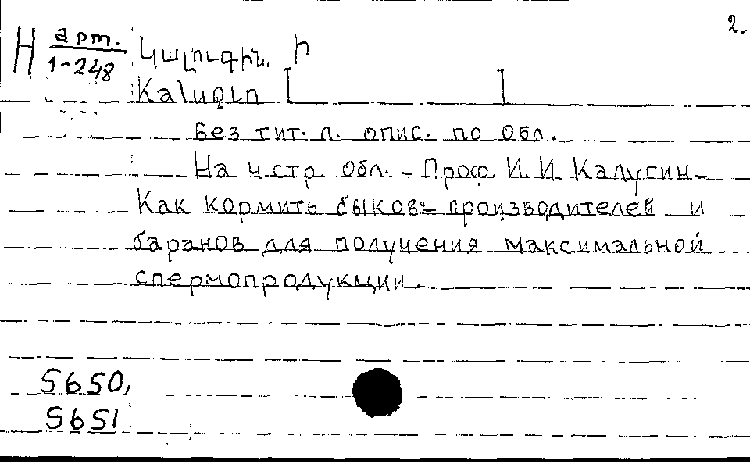 2.
Н арт. Կալուգին. Ի
1-248
Kalugin [ ]
Без тит. л. опис. по обл.
На 4 стр. обл. - Проф И. И. Калугин-
Как кормить быков-производителей и
баранов для получения максимальной
спермопродукции.
5650,
5651